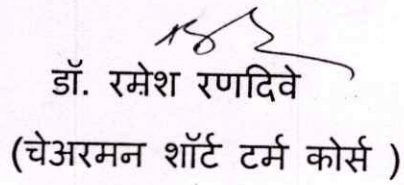 डॉ. रमेश रणदिवे
(चेअरमन शॉर्ट टर्म कोर्स )